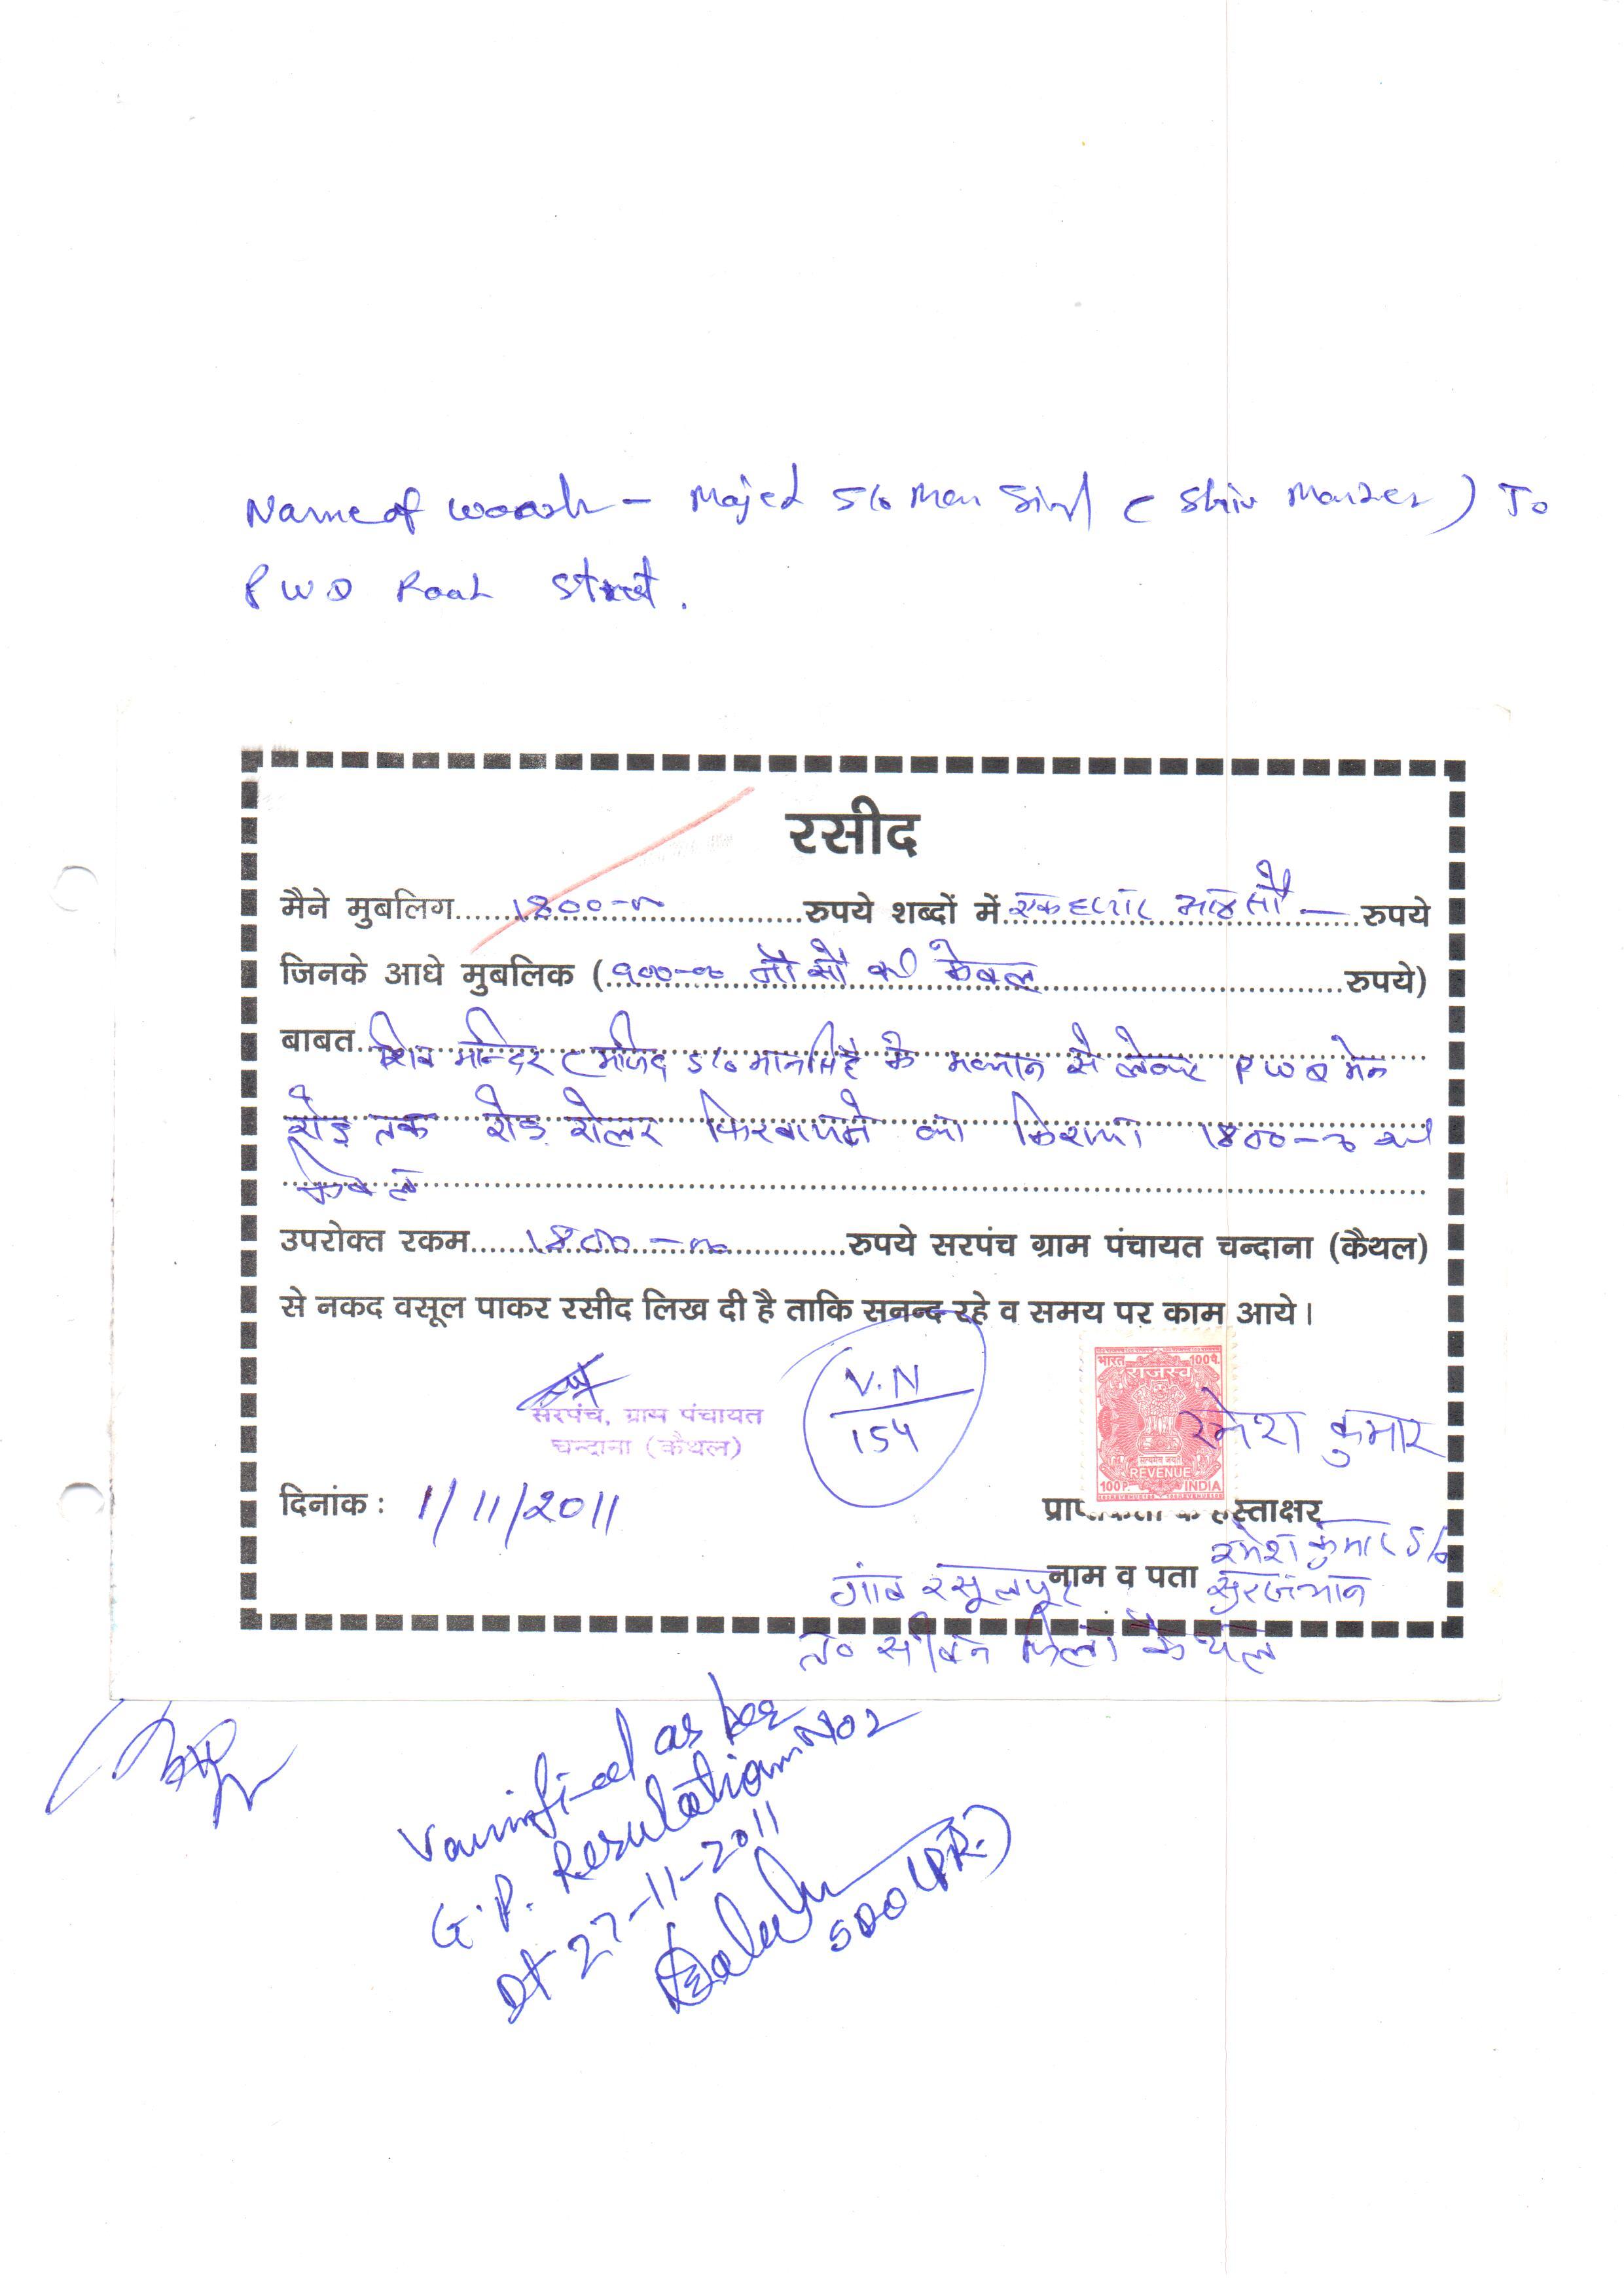 Name of woork - Majed S/o Man Singh (Shiv Mander) To
PWD Road Street.
रसीद
मैने मुबलिग....1800-00....रुपये शब्दों में एक हजार आठ सौ — रुपये
जिनके आधे मुबलिक (900-00 नौ सौ रू केवल....रुपये)
बाबत शिव मन्दिर (मजिद S/o मानसिंह के मकान से लेकर PWD मेन
रोड़ तक रोड़ रोलर फिरवाने का किराया 1800-00 रू
केवल
उपरोक्त रकम....1800-00....रुपये सरपंच ग्राम पंचायत चन्दाना (कैथल)
से नकद वसूल पाकर रसीद लिख दी है ताकि सनन्द रहे व समय पर काम आये।
सरपंच, ग्राम पंचायत
चन्दाना (कैथल)
V.N
154
भारत 100 प.
राजस्व
सत्यमेव जयते
REVENUE
100 P. INDIA
रमेश कुमार
दिनांक : 1/11/2011
हस्ताक्षर
नाम व पता रमेश कुमार S/o
सुरजभान
गांव रसूलपुर
त० सीवन जिला कैथल
Varinfied as per
G.P. Resulation No 2
Dt 27-11-2011
SDO (PR.)